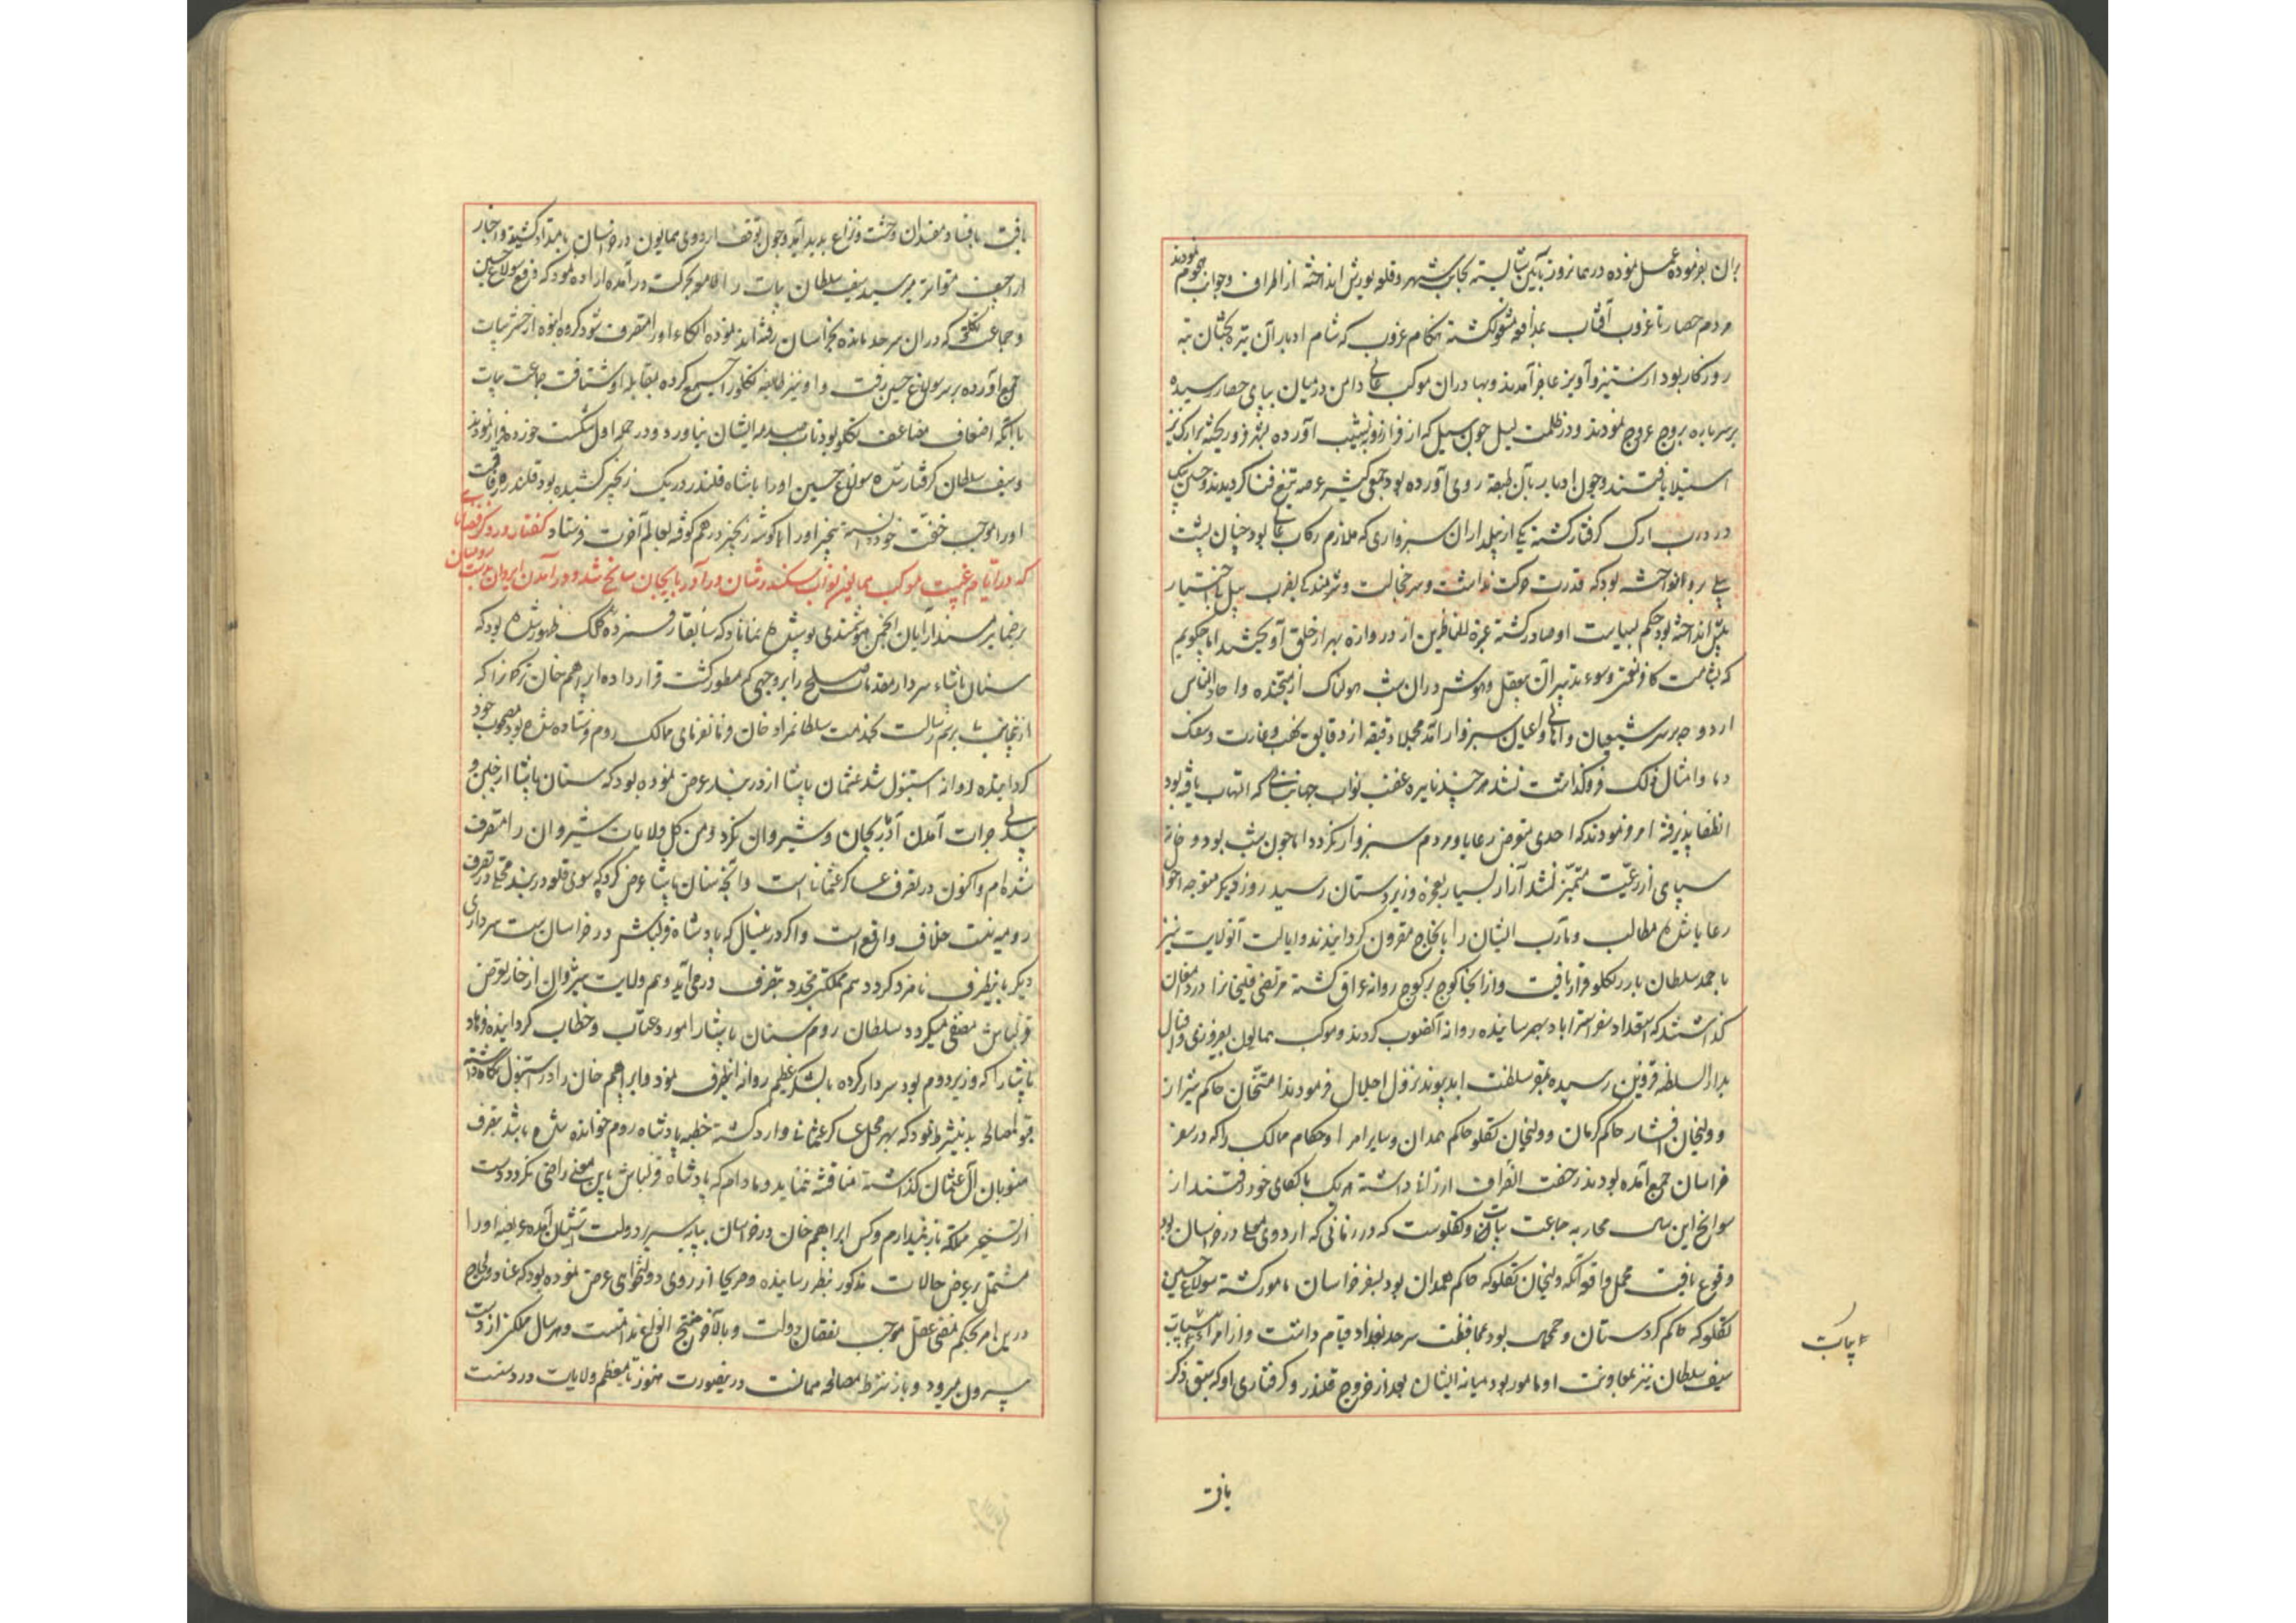 بران بفرموده عمل نموده در همانروز بآیین شایسته بجانب شهر و قلعه یورش انداخته از اطراف و جوانب هجوم نمودند
مردم حصار تا غروب آفتاب بمدافعه مشغول گشته هنگام غروب که شام ادبار آن تیره بختان تبه
روزکار بود از ستیز و آویز عاجز آمدند و بهادران موکب عالی دامن در میان بپای حصار رسیده
بر سر باره و بروج عروج نمودند و در ظلمت لیل چون سیل که از فراز رو بنشیب آورده بشهر فرو ریخته بر ارک نیز
استیلا یافتند و چون ادبار بآن طبقه روی آورده بود جمعی کثیر عرصه تیغ فنا کردیدند و حسن بیک
در درب ارک گرفتار گشته یکی از پیلداران سبزواری که ملازم رکاب عالی بود چنان پشت
پیلی بر و انواخته بود که قدرت حرکت نداشت و سر خجالت و شرمندگی بضرب بیل بی اختیار
پیش انداخته بود حکم بسیاست او صادر گشته عبرة للناظرین از دروازه شهر از حلق آویختند اما چکویم
که بشامت کافر نعمتی و سوء تدبیر آن بیعقل و هوش در ان شب هولناک از جنده و احاد الناس
اردو چه بر سر شیعیان و اهالی و اعیان سبزوار آمد مجملا دقیقه از دقایق نهب و غارت و سفک
دما و امثال ذلک فروگذاشت نشد هر چند نایره غضب نواب جهانبانی که التهاب یافته بود
انطفا پذیرفته امر فرمودند که احدی متعرض رعایا و مردم سبزوار نکردد اما چون شب بود و خانه
سپاهی از رعیت متمیز نشد آزار بسیار بعجزه و زیردستان رسید روز دیکر متوجه احوال
رعایا شده مطالب و مآرب ایشان را بانجاح مقرون کردانیدند و ایالت آنولایت نیز
بامحمد سلطان بادر تکلو قرار یافت و از انجا کوچ بر کوچ روانه عراق گشته مرتضی قلیخانرا در دامغان
گذاشتند که استعداد سفر استراباد بهم رسانیده روانه آنصوب کردند و موکب همایون بفیروزی و اقبال
بدار السلطنه قزوین رسیده بمقر سلطنت ابد پیوند نزول اجلال فرمودند امتخان حاکم شیراز
و ولیخان افشار حاکم کرمان و ولیخان تکلو حاکم همدان و سایر امرا و حکام ممالک را که در سفر
خراسان جمع آمده بودند رخصت انصراف ارزانی داشته هر یک بالکای خود رفتند از
سوانح این سال محاربه جماعت بیات و تکلوست که در زمانی که اردوی معلی در خراسان بود
وقوع یافت مجمل واقعه آنکه ولیخان تکلو که حاکم همدان بود بسفر خراسان مامور گشته سولاغ حسین
تکلو که حاکم کردستان و جمجمال بود بمحافظت سرحد بغداد قیام داشت و از امراء بیات
سیف سلطان نیز بمعاونت او مامور بود میانه ایشان بعد از خروج قلندر و گرفتاری او که سبق ذکر
بیات
یافت
یافت بافساد مفسدان وحشت و نزاع پدید آمد و چون توقف اردوی همایون در خراسان بامتداد کشید و اخبار
اراجیف متواتر میرسید سیف سلطان بیات را لاهو بحرکت درآمده اراده نمود که دفع سولاغ حسین
و جماعت تکلو که در ان سرحد مانده بخراسان نرفته اند نموده الکاء او را متصرف شود گروه انبوه از حشر بیات
جمع آورده بر سر سولاغ حسین رفت و او نیز طایفه تکلو را جمع کرده بمقابله او شتافت جماعت بیات
با آنکه اضعاف مضاعف تکلو بودند تاب صدمه ایشان نیاورده در حمله اول شکست خورده فرار نمودند
و سیف سلطان گرفتار شده سولاغ حسین او را با شاه قلندر در یک زنجیر کشیده بود قلندر رفاقت
او را موجب خفت خود دانسته بیخبر او را بکوشه زنجیر در هم کوفته بعالم آخرت فرستاد گفتار در ذکر قضایائی
که در ایام غیبت موکب همایون نواب سکندر شان در آذربایجان سانح شد و در آمدن ایروان بدست رومیان
بر ضمایر مسند آرایان انجمن هوشمندی پوشیده نماناد که سابقا رقمزده کلک ظهور شده بود که
سنان پاشاء سردار مقدمات صلح را بر وجهی که مسطور گشت قرار داده ابراهیم خان ترکمانرا که
از ینجانب برسم رسالت بخدمت سلطانمراد خان فرمانفرمای ممالک روم فرستاده شده بود مصحوب خود
کردانیده روانه استنبول شد عثمان پاشا از دربند عرض نموده بود که سنان پاشا از جبن و
بیدلی جرات آمدن آذربایجان و شیروان نکرد و من کل ولایات شیروان را متصرف
شده ام و اکنون در تصرف عساکر عثمانی است و آنچه سنان پاشا عرض کرد که سوی قلعه دربند محلی در تصرف
رومیه نیست خلاف واقع است و اگر در ینسال که پادشاه قزلباش در خراسان است سرداری
دیکر باینطرف نامزد کردد هم مملکتی مجدد بتصرف در می آید و هم ولایت شیروان از خار تعرض
قزلباش مصفی میکردد سلطان روم سنان پاشا را مورد عتاب و خطاب کردانیده فرهاد
پاشا را که وزیر دوم بود سردار کرده با لشکر عظیم روانه اینطرف نمود و ابراهیم خان را در استنبول نگاه داشته
قبول مصالحه بدینشرط نمود که بهر محل عساکر عثمانی وارد گشته خطبه پادشاه روم خوانده شده باشد بتصرف
منسوبان آل عثمان گذاشته مناقشه ننماید و مادام که پادشاه قزلباش باین معنی راضی نکردد دست
از تسخیر مملکت باز نمیدارم و کس ابراهیم خان در خراسان بپایه سریر دولت آمده عریضه او را
مشتمل بر عرض حالات مذکور بنظر رسانیده و صریحا از روی دولتخواهی عرض نموده بود که عناد و لجاج
درین امر بحکم مقتضی عقل موجب نقصان دولت و بالاخره منتج انواع ندامتست و هر سال ملکی از دست
بیرون میرود و باز بشرط مصالحه ممانعت در ینصورت هنوز تا معظم ولایات در دست